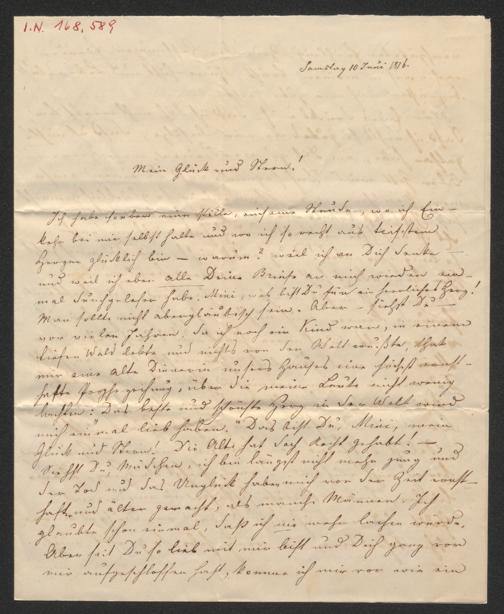 I.N. 168,589
Samstag 10 Juni 1876.
Mein Glück und Stern!
Ich habe soeben eine stille, einsame Stunde, wo ich Ein-
kehr bei mir selbst halte und wo ich so recht aus tiefstem
Herzen glücklich bin – warum? weil ich an Dich denke –
und weil ich eben alle Deine Briefe an mich wieder ein-
mal durchgelesen habe. Mini, was bist Du für ein herrliches Herz!
Man sollte nicht abergläubisch sein. Aber – siehst Du
vor vielen Jahren, da ich noch ein Kind war, in einem
tiefen Wald lebte und nichts von der Welt wußte, that
mir eine alte Dienerin unsers Hauses eine höchst ernst-
hafte Prophezeihung, über die meine Leute nicht wenig
lachten: Das beste und schönste Herz in der Welt wird
mich einmal lieb haben. Das bist Du, Mini, mein
Glück und Stern. Die Alte hat doch Recht gehabt! –
Siehst Du, Mädchen, ich bin längst nicht mehr jung und
der Tod und das Unglück haben mich vor der Zeit ernst-
haft und älter gemacht, als manche Männer. Ich
glaubte schon einmal, daß ich nie mehr lachen würde.
Aber seit Du so lieb mit mir bist und Dich ganz vor
mir aufgeschlossen hast, komme ich mir vor wie ein